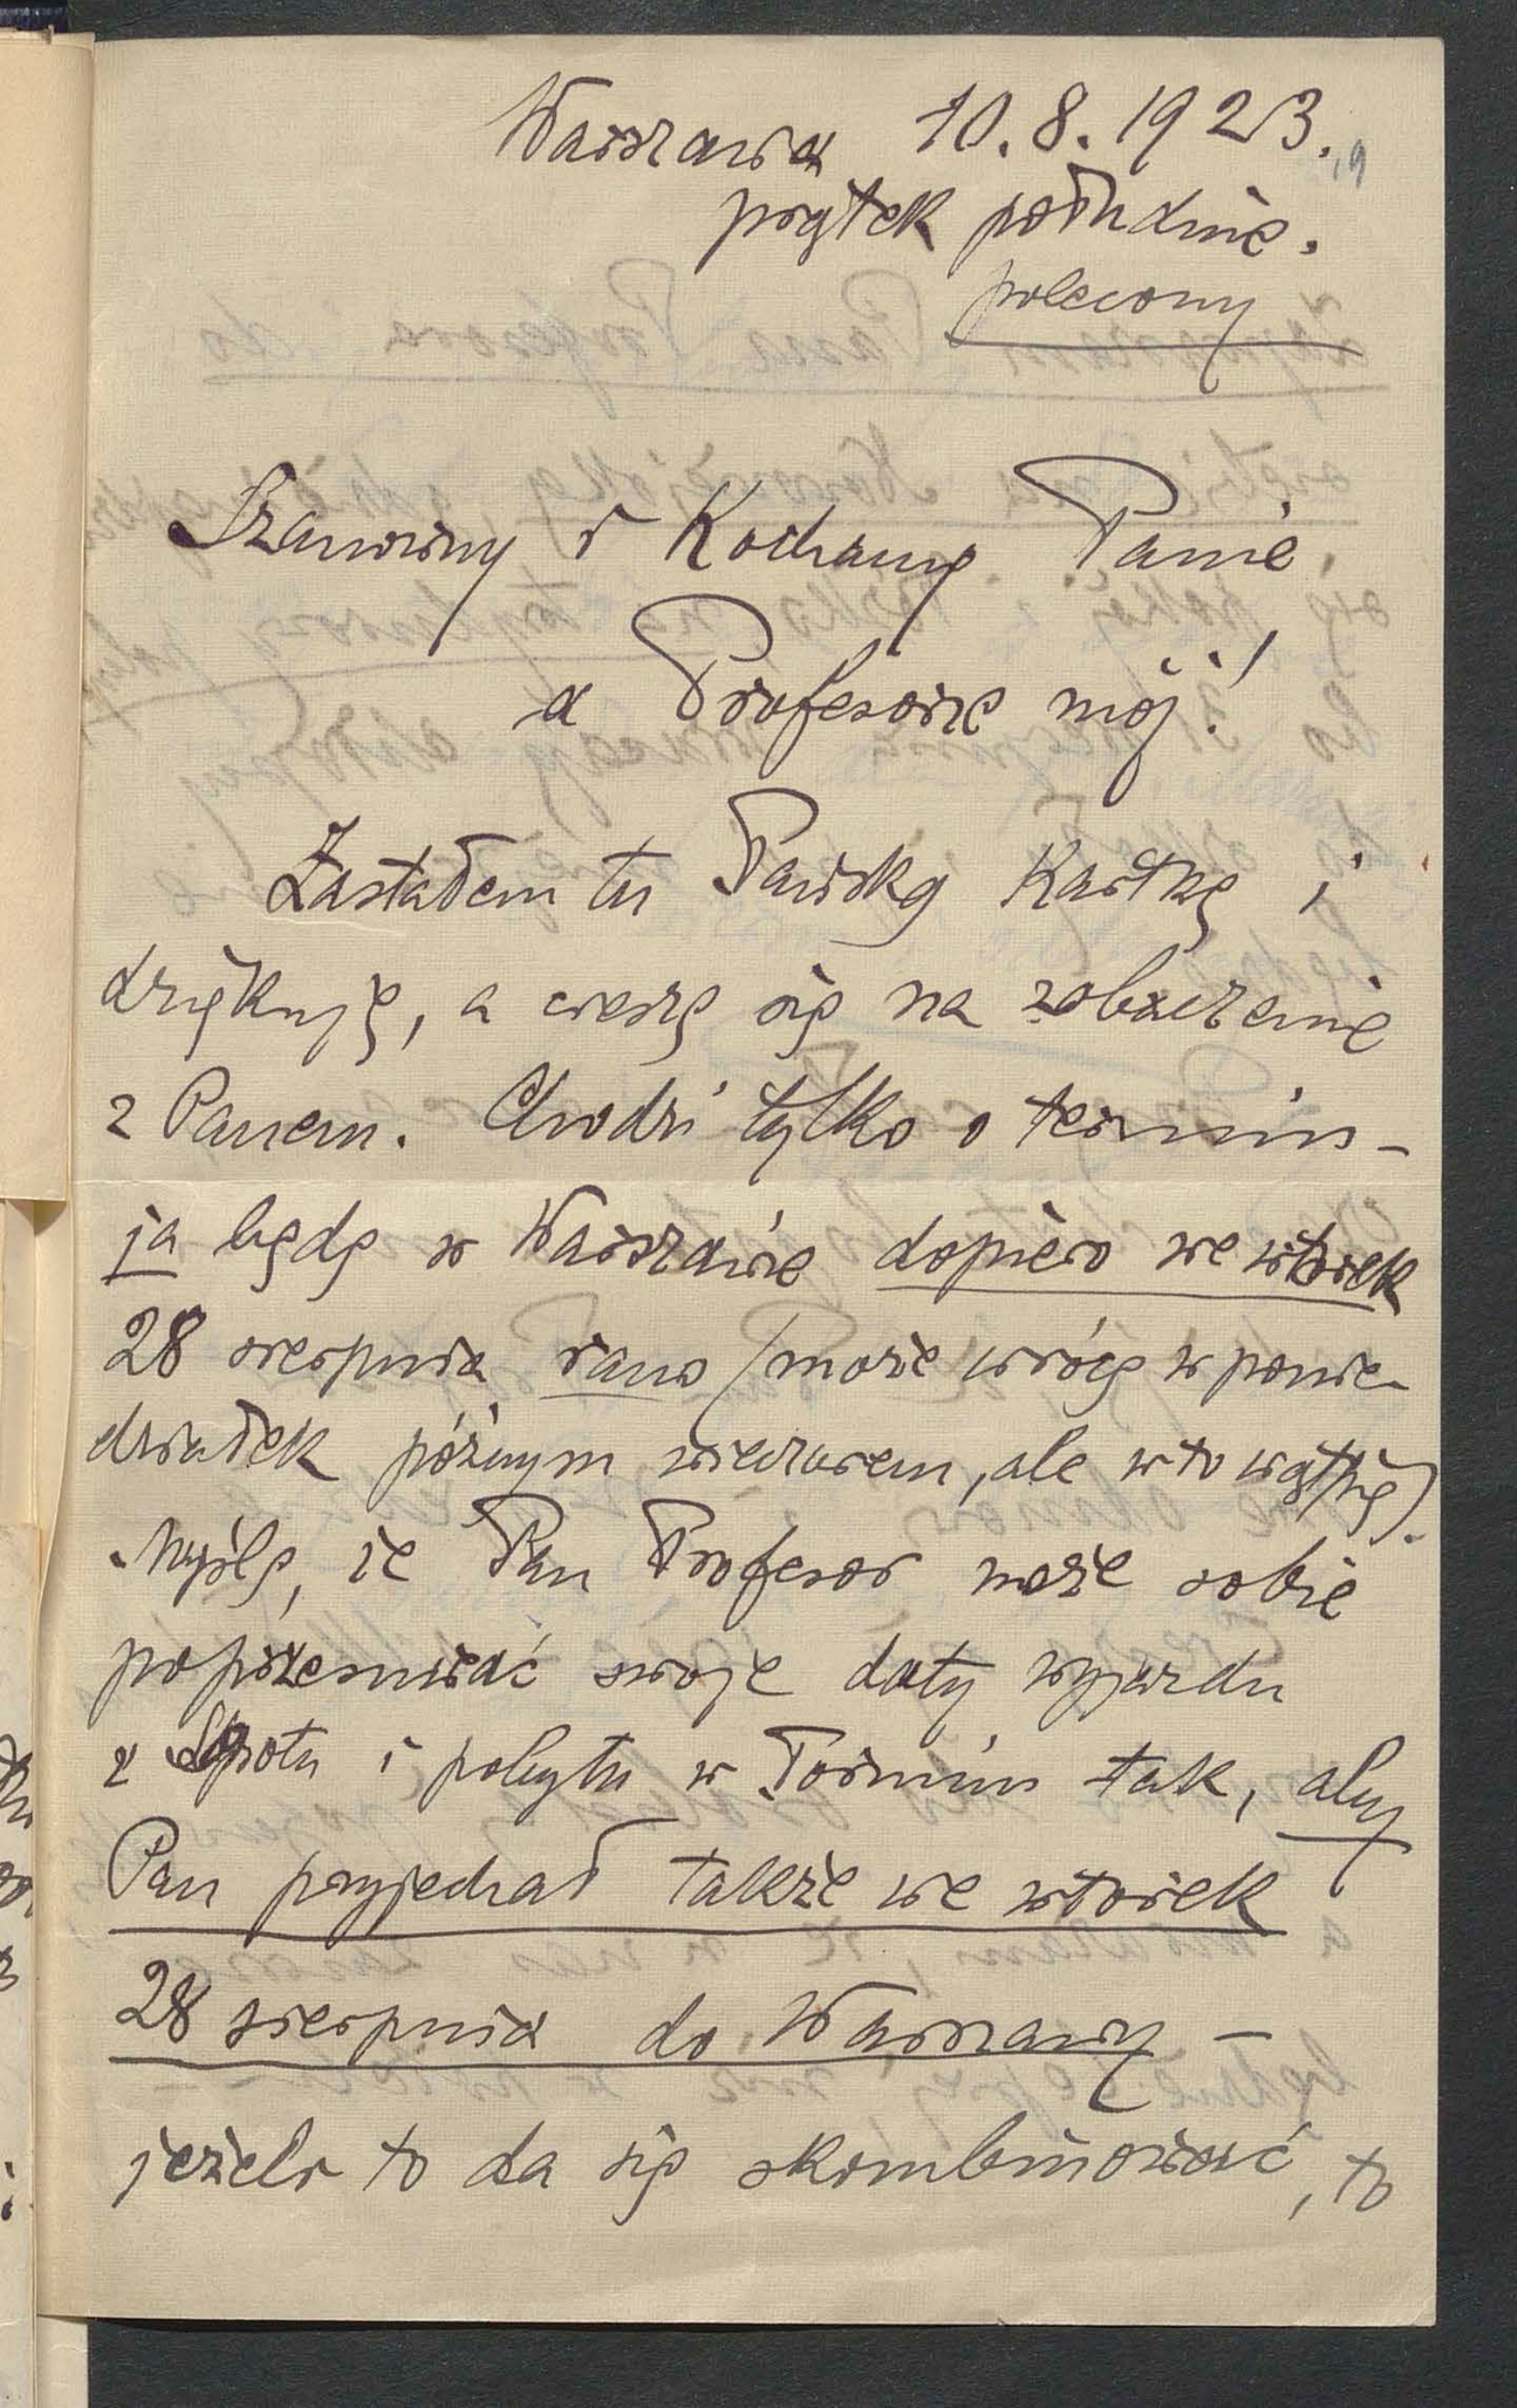 Warszawa 10.8.1923.
19
piątek południe.
polecony
Szanowny i Kochany Panie
a Profesorze mój!
Zastałem tu Pańską Kartkę i
dziękuję, a cieszę się na zobaczenie
z Panem. Chodzi tylko o termin –
ja będę w Warszawie dopiero we wtorek
28 sierpnia rano (może wrócę w ponie-
działek późnym wieczorem, ale w to wątpię).
Myślę, że Pan Profesor może sobie
poprzesuwać swoje daty wyjazdu
z Sopotu i pobytu w Toruniu tak, aby
Pan przyjechał także we wtorek
28 sierpnia do Warszawy –
jeżeli to da się skombinować, to